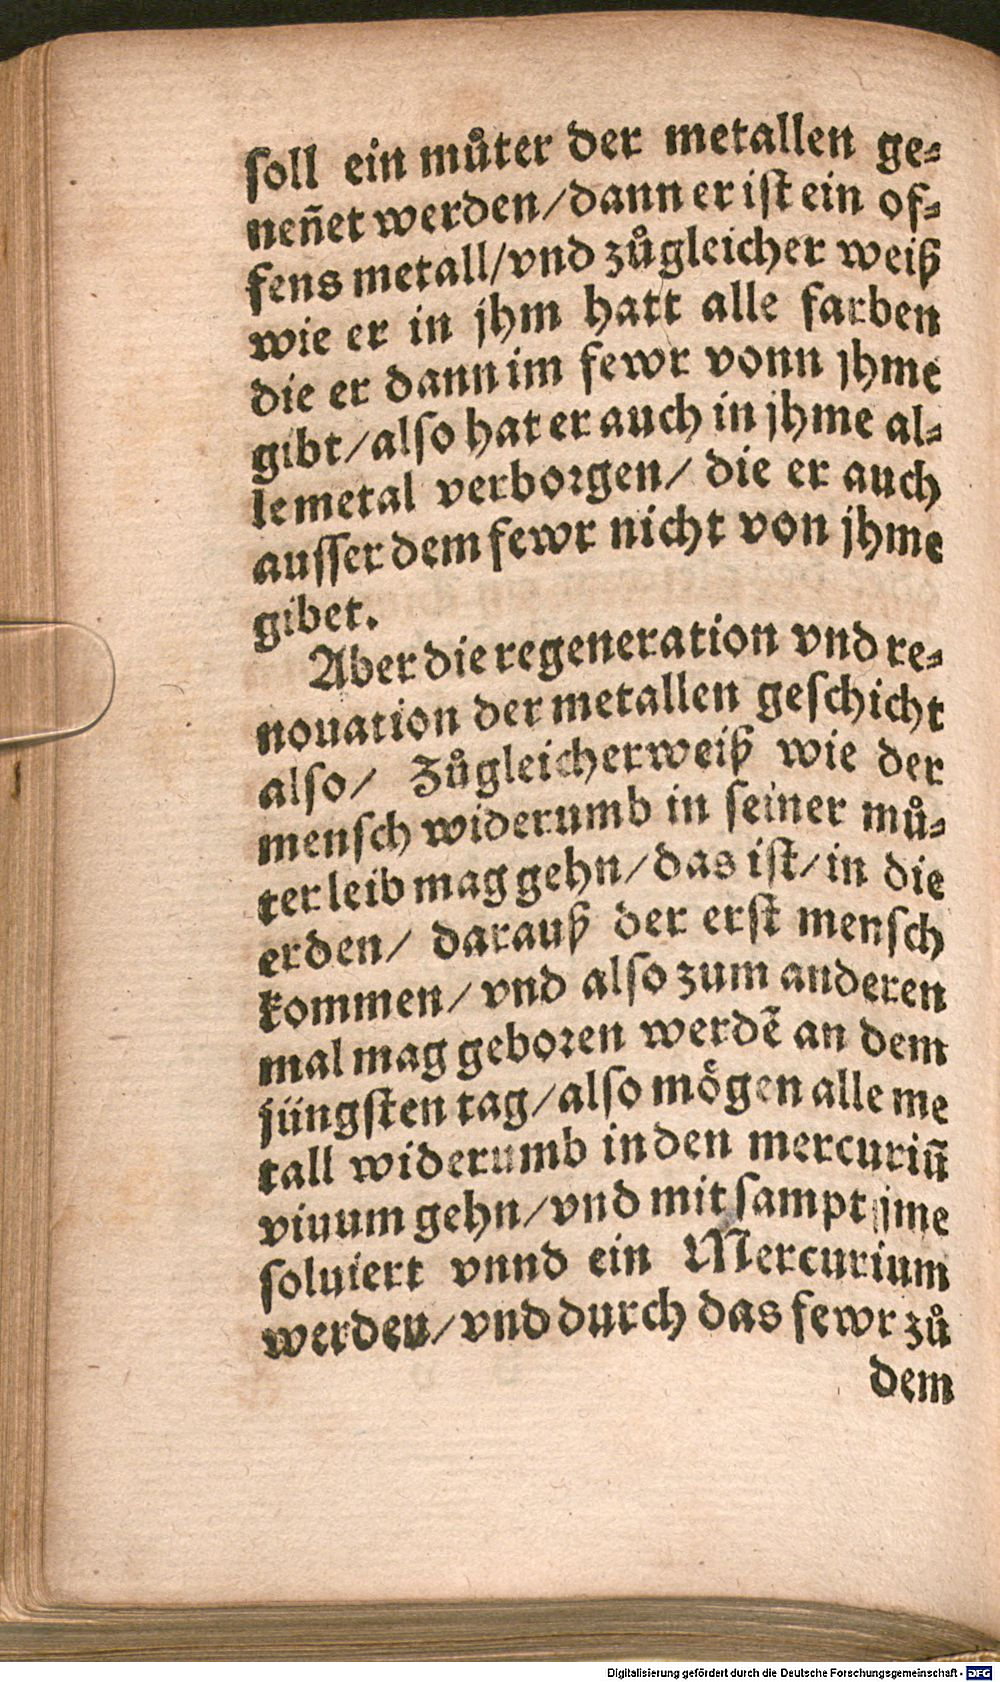 soll ein můter der metallen ge⸗
neñet werden/dann er ist ein of⸗
fens metall/vnd zůgleicher weiß
wie er in jhm hatt alle farben
die er dann im fewr vonn jhme
gibt/also hat er auch in jhme al⸗
le metal verborgen/ die er auch
ausser dem fewr nicht von jhme
gibet.
Aber die regeneration vnd re⸗
nouation der metallen geschicht
also/ Zůgleicherweiß wie der
mensch widerumb in seiner mů⸗
ter leib mag gehn/das ist/in die
erden/ darauß der erst mensch
kommen/vnd also zum anderen
mal mag geboren werdẽ an dem
jüngsten tag/also mögen alle me
tall widerumb in den mercuriũ
viuum gehn/vnd mit sampt jme
soluiert vnnd ein Mercurium
werden/vnd durch das fewr zů
dem
Digitalisierung gefördert durch die Deutsche Forschungsgemeinschaft - DFG